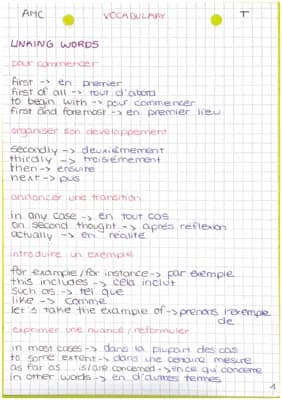 AMC VOCABULARY T
LINKING WORDS
pour commencer
first -> en premier
first of all -> tout d'abord
to begin with -> pour commencer
first and foremost -> en premier lieu
organiser son developpement
secondly -> deuxièmement
thirdly -> troisièmement
then -> ensuite
next -> puis
annoncer une transition
in any case -> en tout cas
on second thought -> après reflexion
actually -> en réalité
introduire un exemple
for example / for instance -> par exemple
this includes -> cela inclut
such as -> tel que
like -> comme
let's take the example of -> prenons l'exemple
de
exprimer une nuance / reformuler
in most cases -> dans la plupart des cas
to some extent -> dans une certaine mesure
as far as ... is/are concerned -> en ce qui concerne
in other words -> en d'autres termes
1